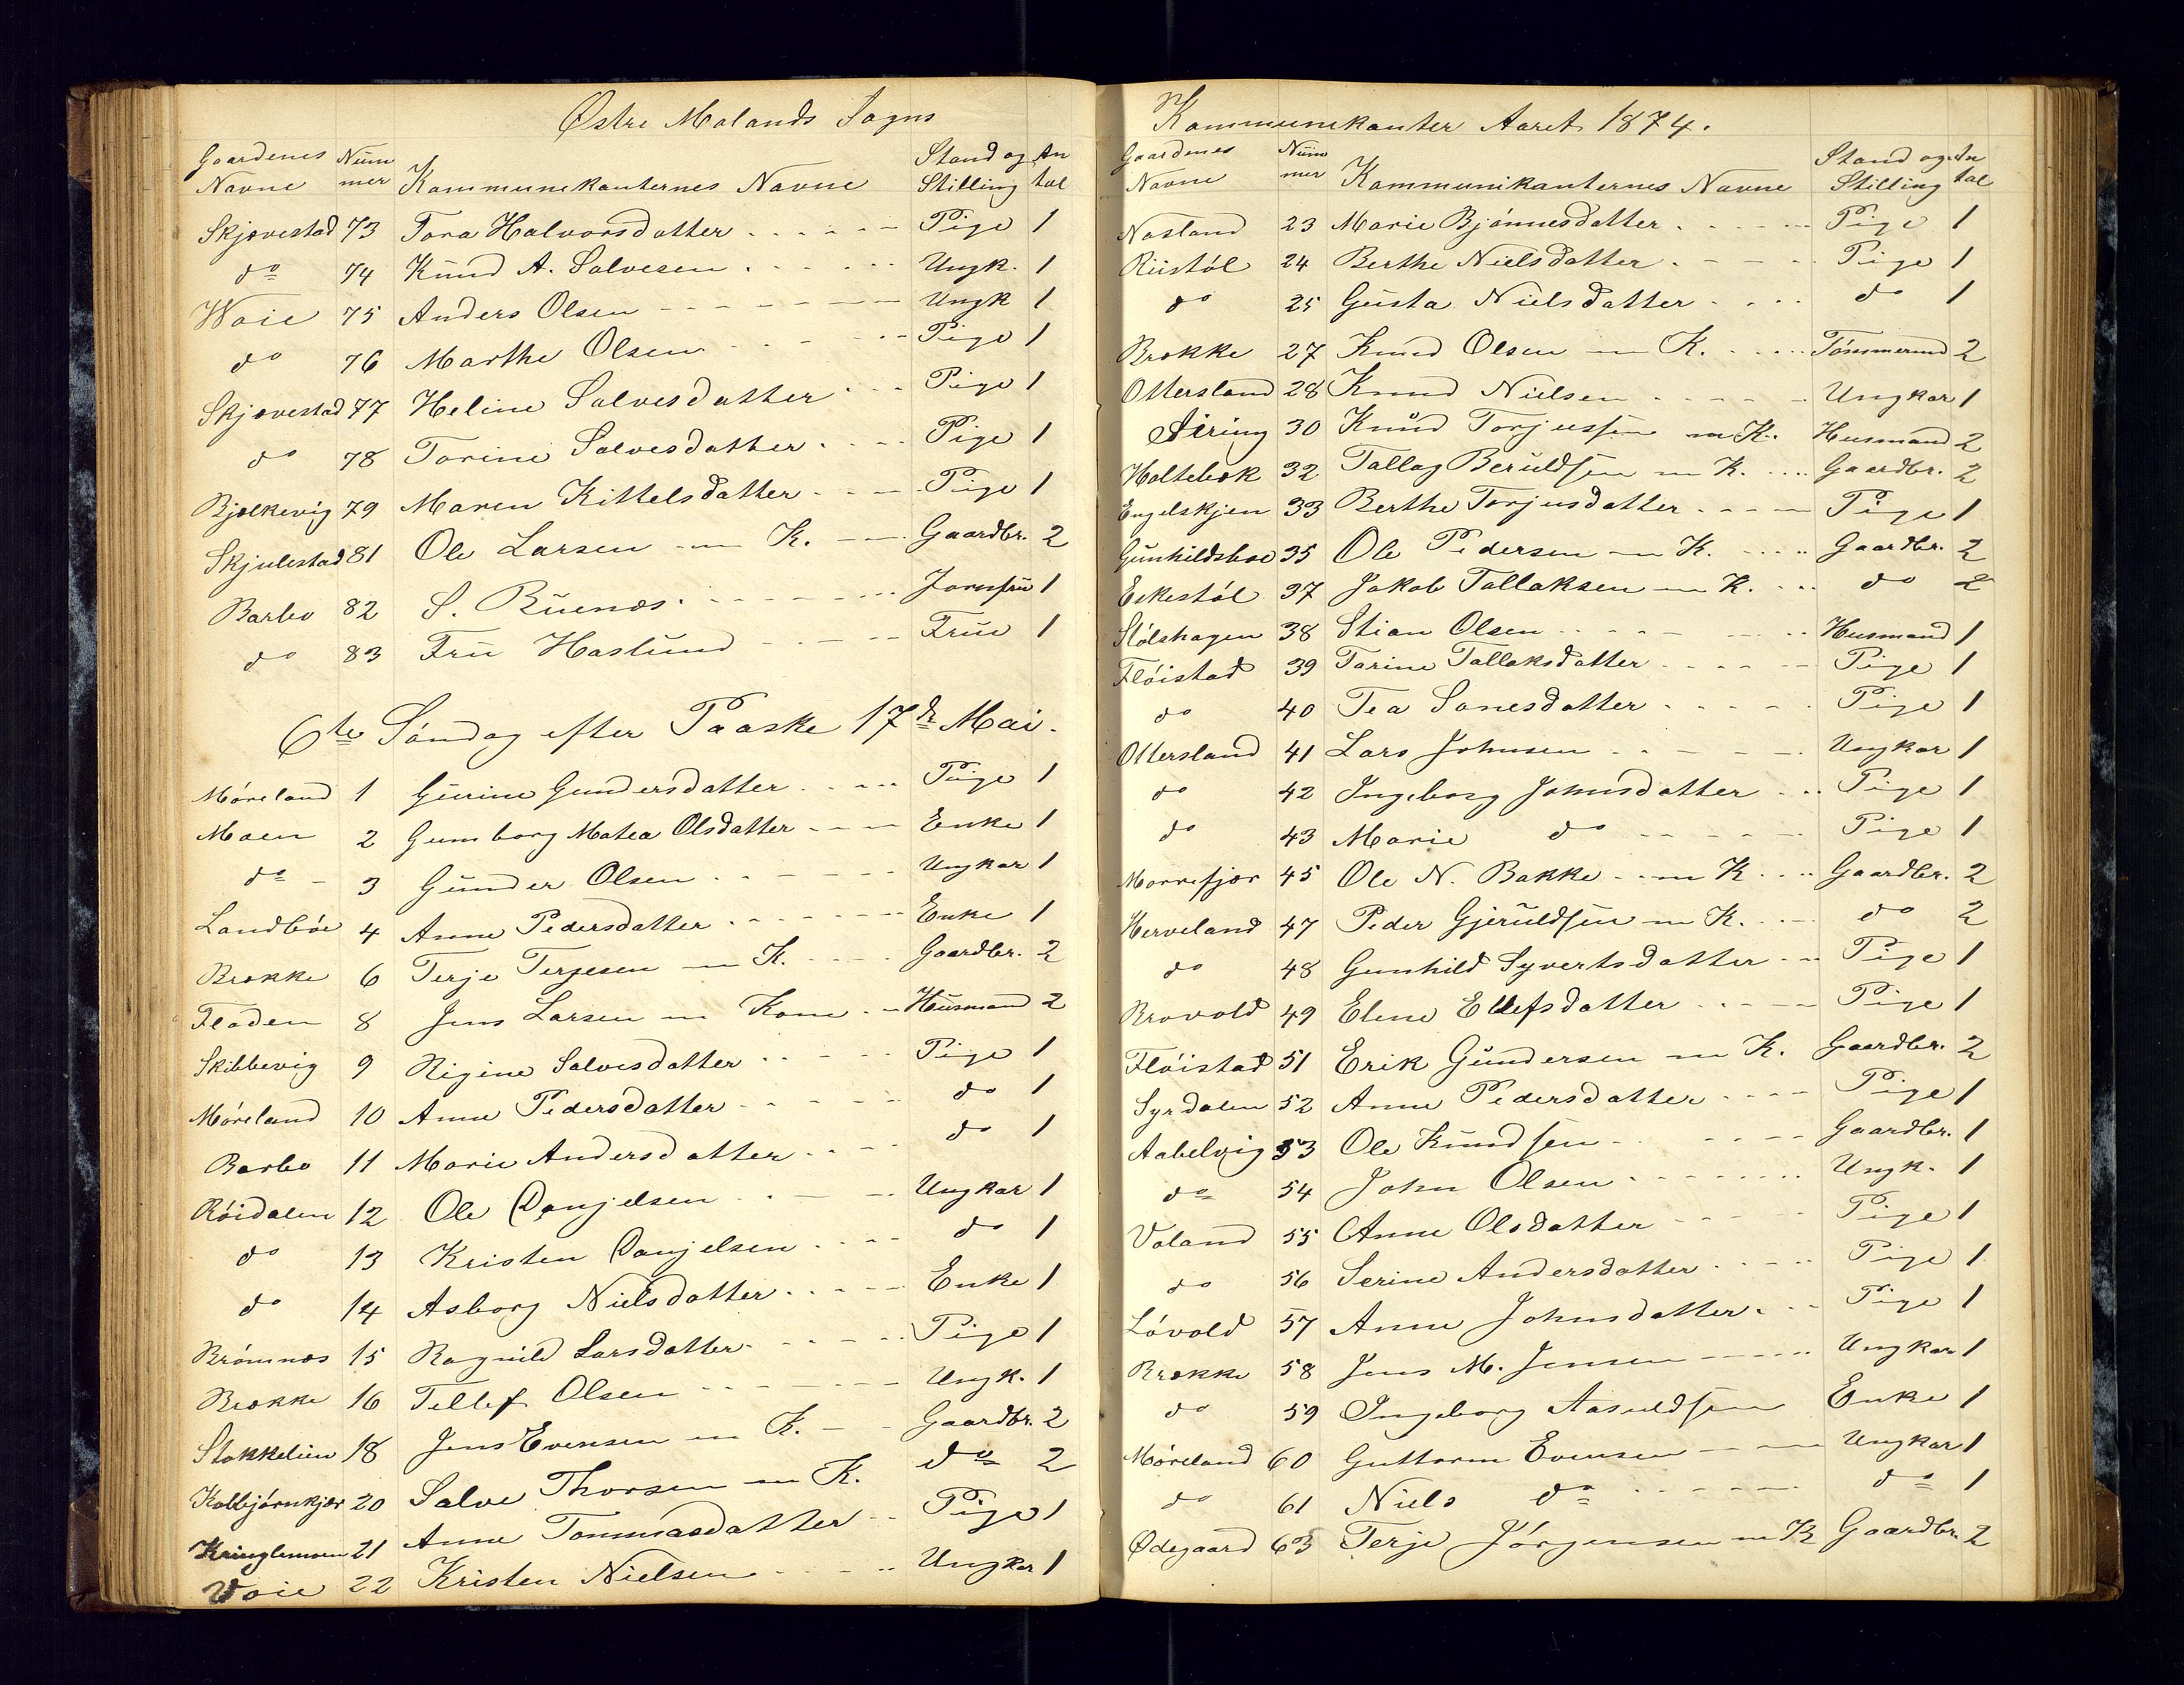 Østre Molands Sogns
Gaardenes Num Stand og An
Navne mer Kommunekanternes Navne Stilling tal
Skjævestad 73 Tora Halvorsdatter Pige 1
do 74 Knud A. Salvesen Ungk. 1
Woie 75 Anders Olsen Ungk 1
do 76 Marthe Olsen Pige 1
Skjævestad 77 Heline Salvesdatter Pige 1
do 78 Torine Salvesdatter Pige 1
Bjelkevig 79 Maren Kittelsdatter Pige 1
Skjulestad 81 Ole Larsen m K. Gaardbr. 2
Barbo 82 S. Buenæs Jomfru 1
do 83 Fru Haslund Frue 1
6te Søndag efter Paaske 17de Mai.
Møreland 1 Gurine Gundersdatter Pige 1
Moen 2 Gumborg Matea Olsdatter Enke 1
do 3 Gunder Olsen Ungkar 1
Landbøe 4 Anne Pedersdatter Enke 1
Brække 6 Terje Terjesen m K. Gaardbr. 2
Fladen 8 Jens Larsen m Kone Husmand 2
Skibbevig 9 Rigine Salvesdatter Pige 1
Møreland 10 Anne Pedersdatter do 1
Barbo 11 Marie Andersdatter do 1
Røidalen 12 Ole Danjelsen Ungkar 1
do 13 Kristen Danjelsen do 1
do 14 Asborg Nielsdatter Enke 1
Brømnæs 15 Ragnild Larsdatter Pige 1
Brække 16 Tellef Olsen Ungk. 1
Stokkelien 18 Jens Evensen m K. Gaardbr. 2
Kalbjørnkjær 20 Salve Thorsen m K. do 2
Kringlemoen 21 Anne Tommasdatter Pige 1
Voie 22 Kristen Nielsen Ungkar 1
Kommunekanter Aaret 1874.
Gaardenes Num Stand og An
Navne mer Kommunikanternes Navne Stilling tal
Næsland 23 Marie Bjønnesdatter Pige 1
Riistøl 24 Berthe Nielsdatter Pige 1
do 25 Gusta Nielsdatter do 1
Brække 27 Knud Olsen m K. Tømmermd 2
Ottersland 28 Knud Nielsen Ungkar 1
Siring 30 Knud Torjussen m K. Husmand 2
Holtebæk 32 Tallag Beruldsen m K. Gaardbr. 2
Engelskjen 33 Berthe Torjusdatter Pige 1
Gunhildsboe 35 Ole Pedersen m K. Gaardbr. 2
Eekestøl 37 Jakob Tallaksen m K. do 2
Stølshagen 38 Stian Olsen Husmand 1
Fløistad 39 Tarine Tallaksdatter Pige 1
do 40 Tea Sanesdatter Pige 1
Ottersland 41 Lars Johnsen Ungkar 1
do 42 Ingeborg Johnsdatter Pige 1
do 43 Marie do Pige 1
Morrefjær 45 Ole N. Bakke m K. Gaardbr. 2
Herveland 47 Peder Gjeruldsen m K. do 2
do 48 Gunhild Syvertsdatter Pige 1
Brovold 49 Elene Ellefsdatter Pige 1
Fløistad 51 Erik Gundersen m K. Gaardbr. 2
Syrdalen 52 Anne Pedersdatter Pige 1
Aabelvig 53 Ole Knudsen Gaardbr. 1
do 54 John Olsen Ungk. 1
Voland 55 Anne Olsdatter Pige 1
do 56 Serine Andersdatter Pige 1
Løvold 57 Anne Johnsdatter Pige 1
Brække 58 Jens M. Jensen Ungkar 1
do 59 Ingeborg Aasuldsen Enke 1
Møreland 60 Guttorm Evensen Ungkar 1
do 61 Niels do do 1
Ødegaard 63 Terje Jørgensen m K Gaardbr. 2